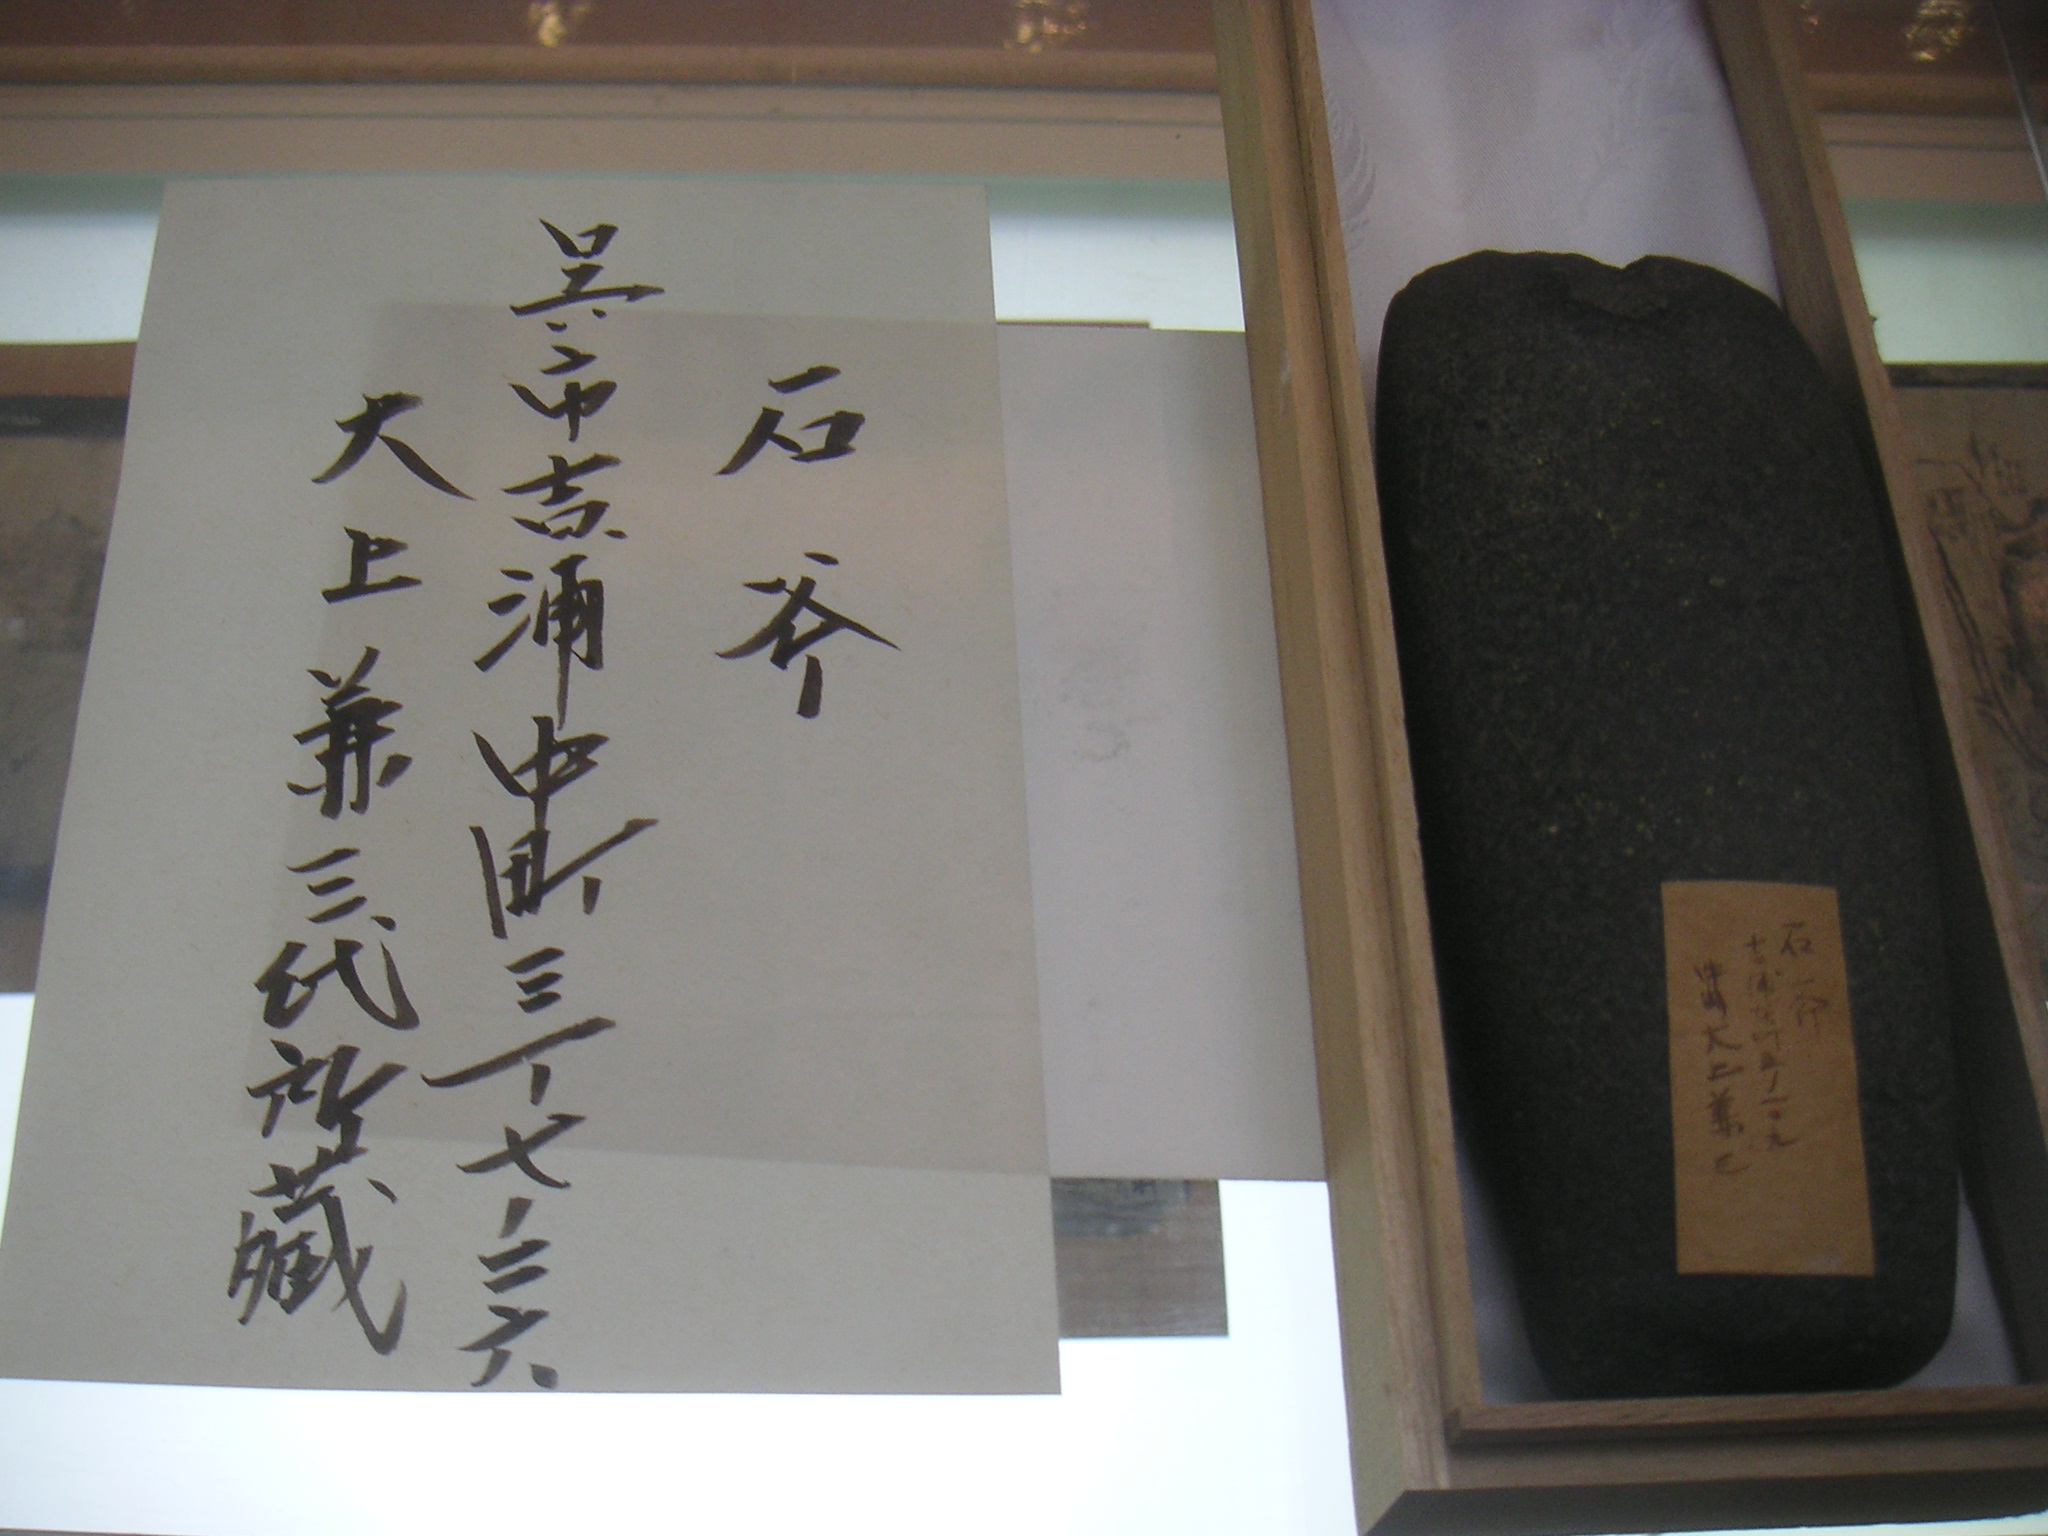 石斧
呉市吉浦中町三丁七ノ二六
大上兼三代所蔵
石斧
大上兼